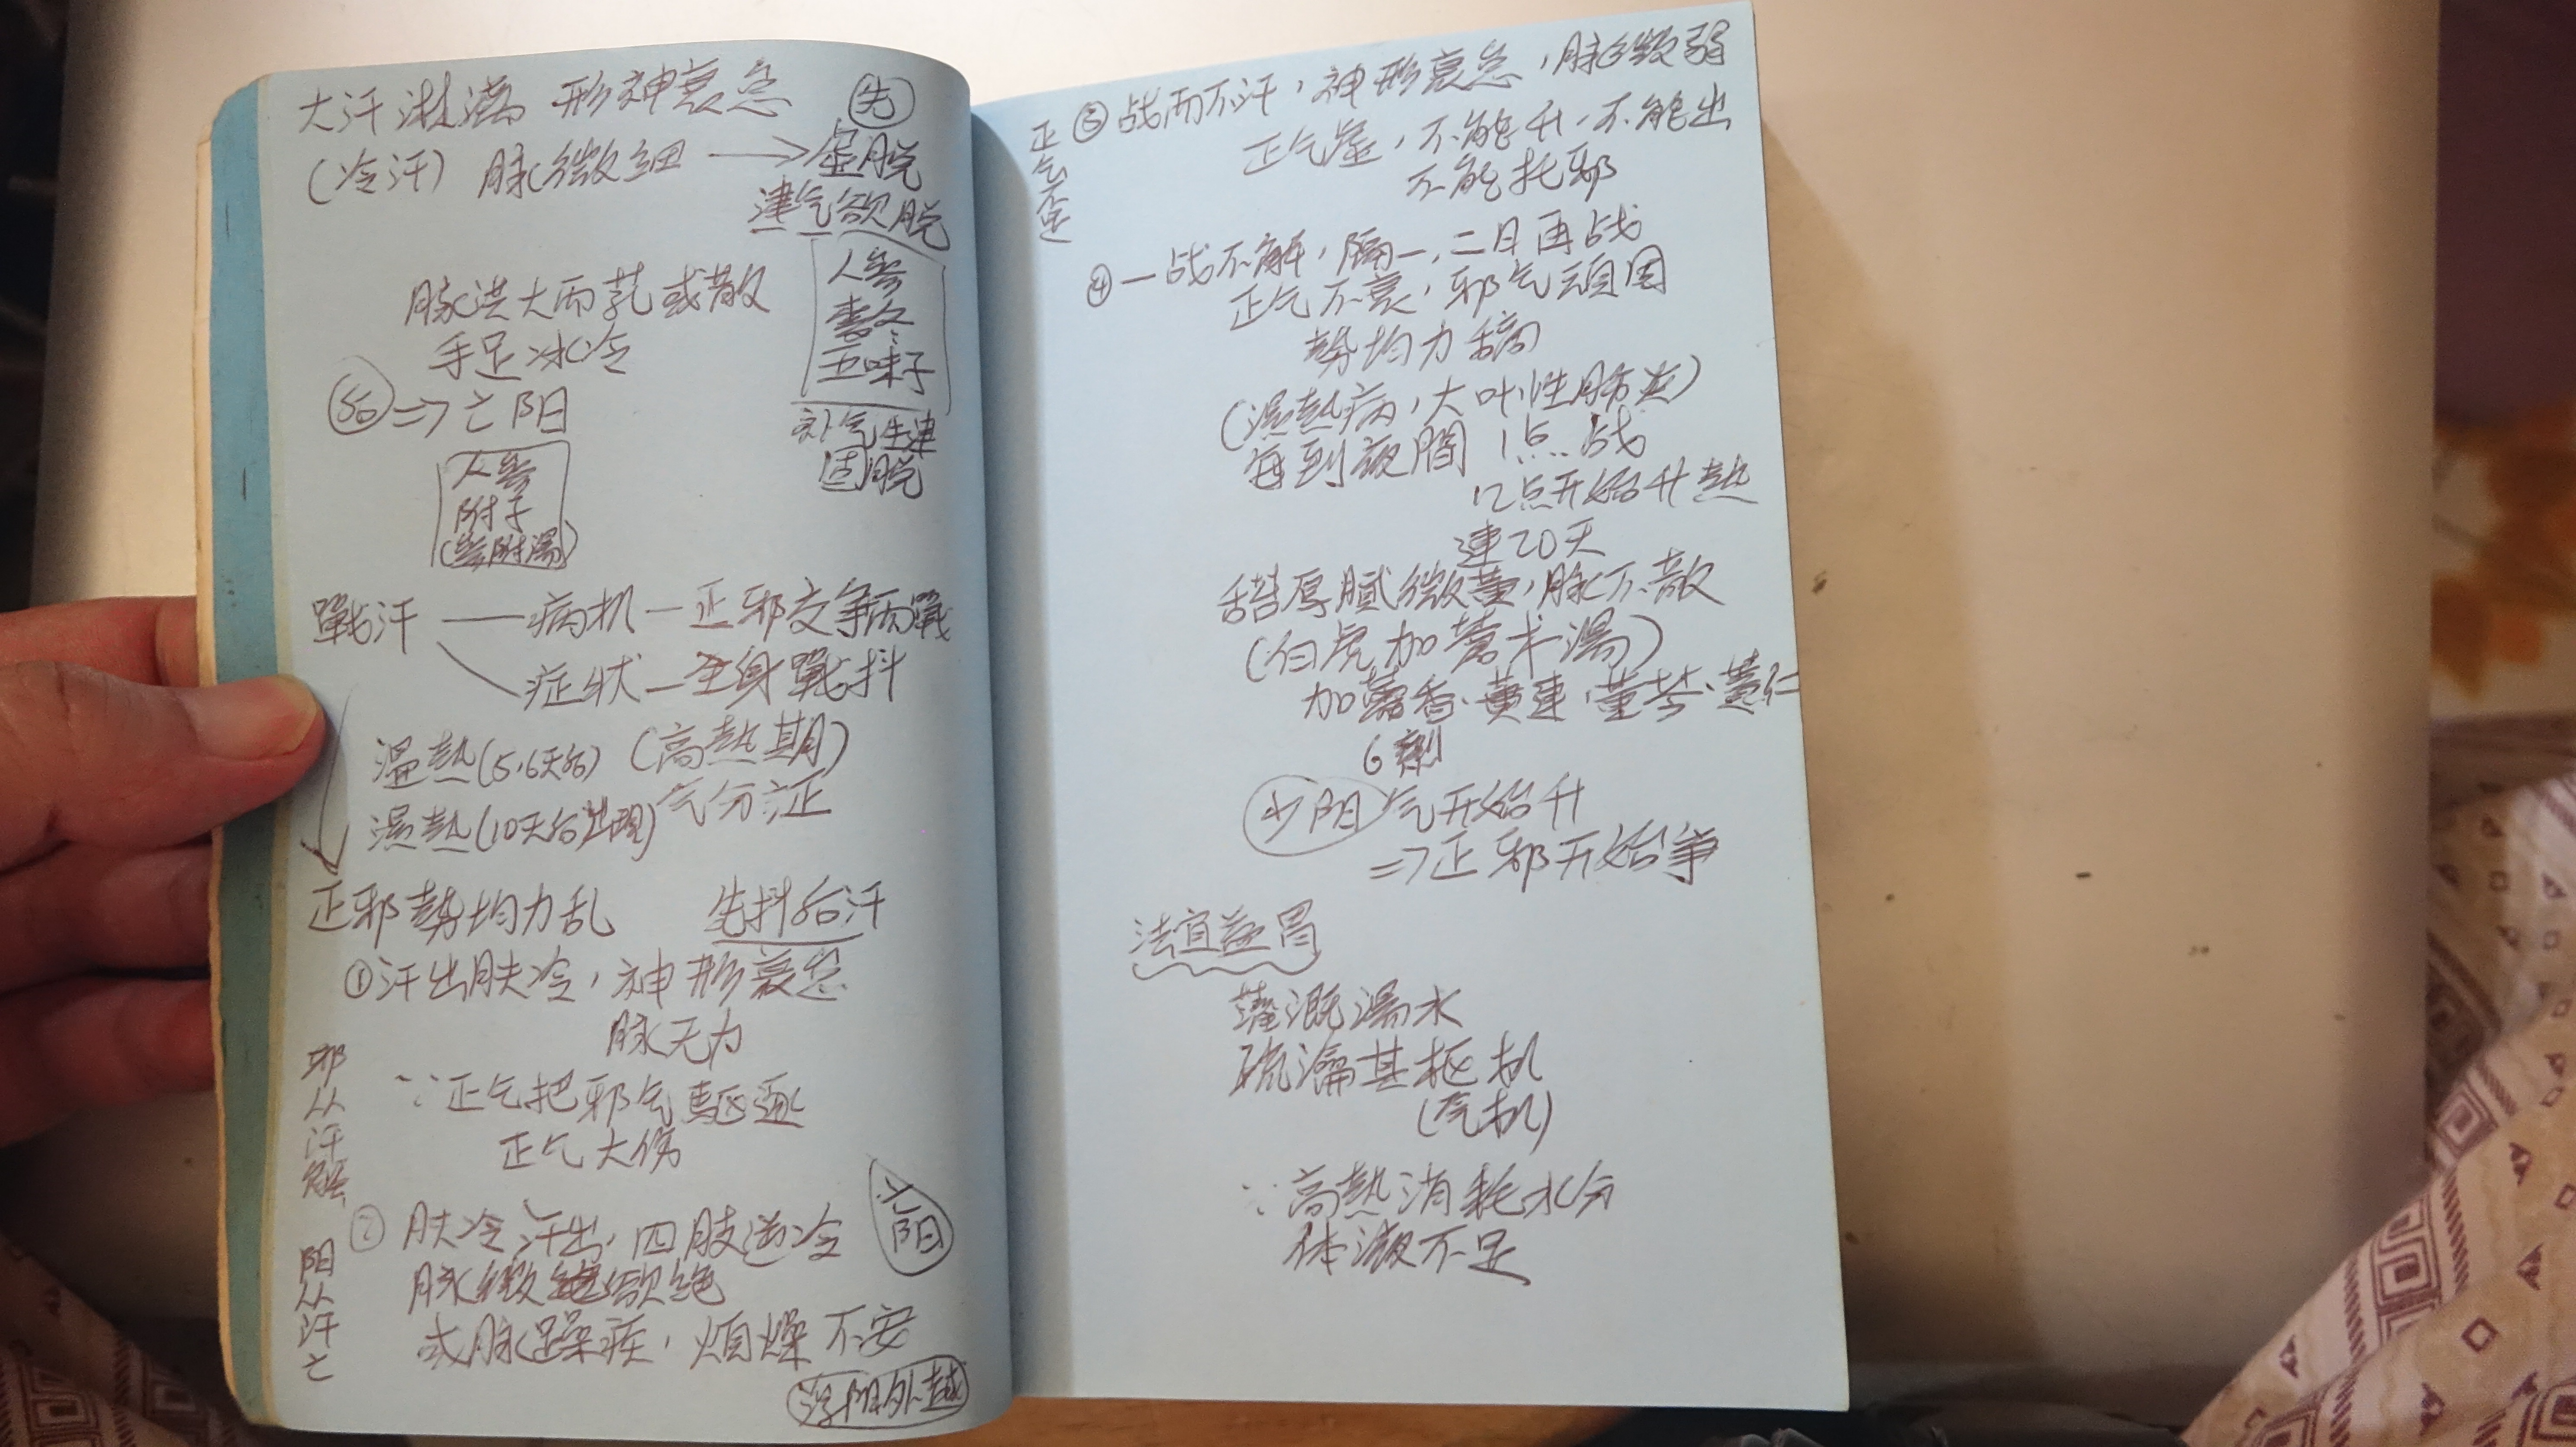 大汗淋漓 形神衰惫 先
(冷汗) 脉微細 → 虚脱
津气欲脱
人参
麦冬
五味子
补气生津
固脱
脉洪大而芤或散
手足冰冷
后 => 亡阳
人参
附子
(参附湯)
戰汗 — 病机 — 正邪交争而戰
症状 — 全身戰抖
温熱(5.6天后) (高熱期)
湿熱(10天后出現) 气分证
正邪勢均力乱 先抖后汗
①汗出肤冷，神形衰惫
脉无力
∵正气把邪气驅逐
正气大伤
邪从汗解
② 肤冷汗出，四肢逆冷
脉微欲绝
或脉躁疾，煩燥不安
浮阳外越
阳从汗亡
正气不足
③战而不汗，神形衰惫，脉微弱
正气虚，不能升、不能出
不能托邪
④一战不解，隔一，二日再战
正气不衰，邪气頑固
勢均力
(湿熱病，大叶性肺炎)
每到夜間 1点..战
12点开始升熱
連20天
舌苔厚膩微黄，脉不散
(白虎加蒼术湯)
加藿香、黄連、黄芩、
6劑
少阳 气开始升
=>正邪开始争
法宜益胃
灌溉湯水
疏瀹其枢机
(气机)
∵高熱消耗水分
体液不足